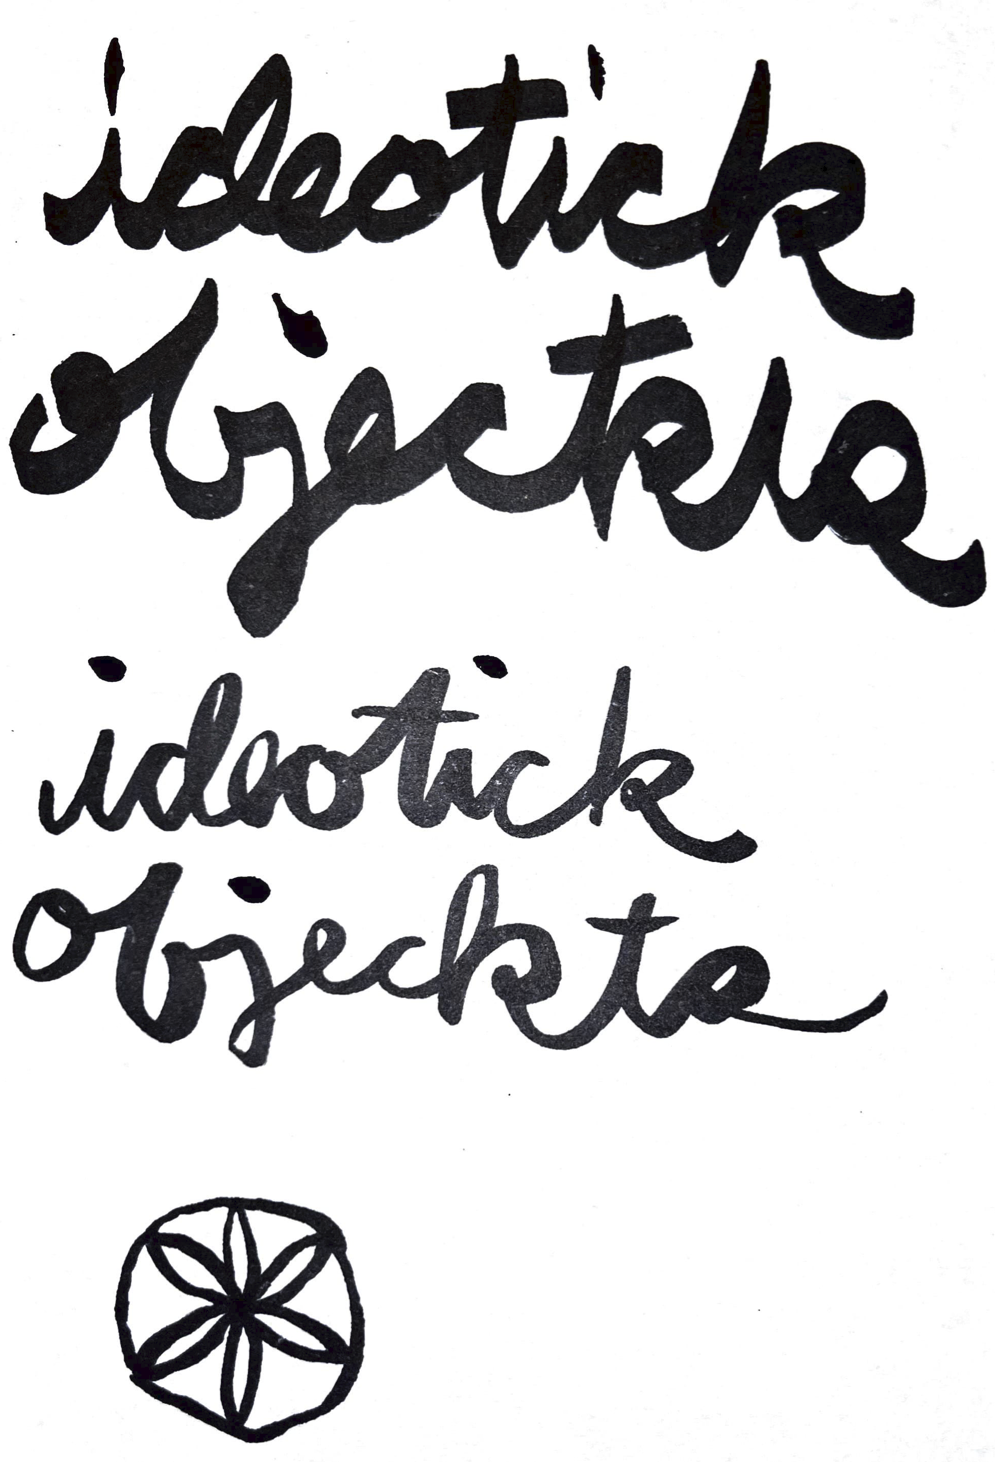 ideotick
objeckta
ideotick
objeckta